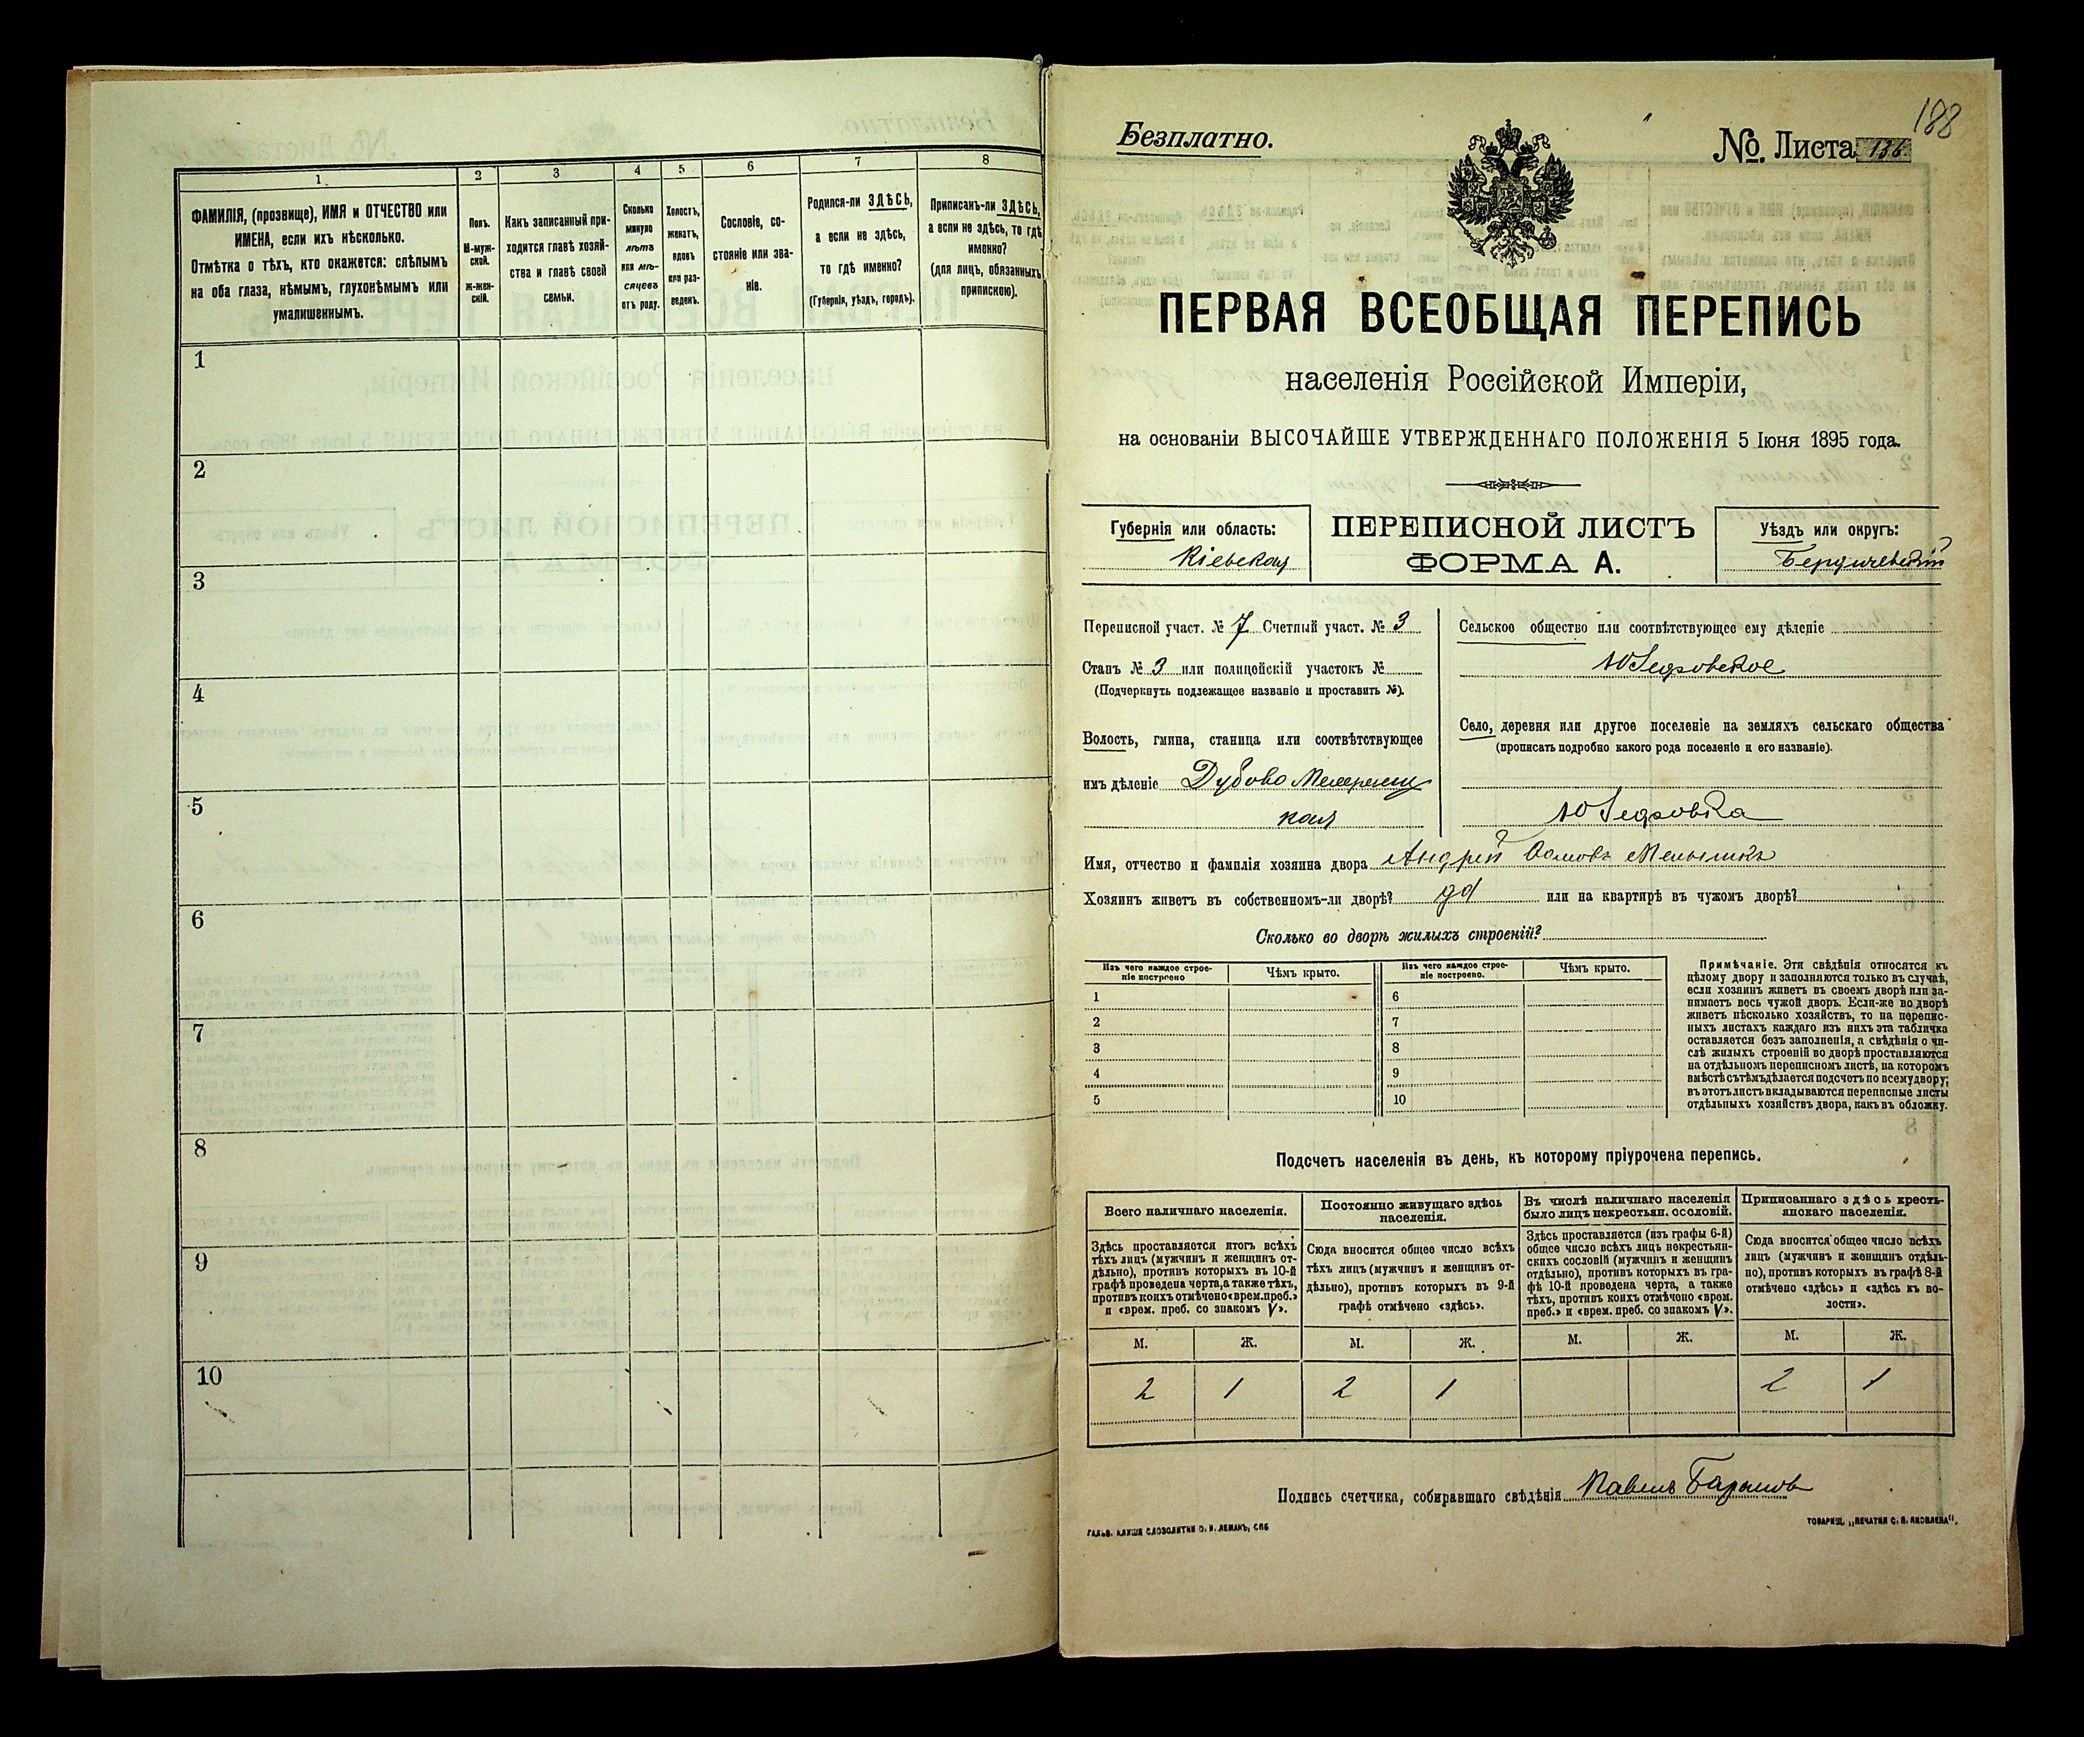 1
2
3
4
5
6
7
8
ФАМИЛІЯ, (прозвище), ИМЯ и ОТЧЕСТВО или
ИМЕНА, если ихъ нѣсколько.
Отмѣтка о тѣхъ, кто окажется: слѣпымъ
на оба глаза, нѣмымъ, глухонѣмымъ или
умалишеннымъ.
Полъ.
М-муж-
ской.
Ж-жен-
скій.
Какъ записанный при-
ходится главѣ хозяй-
ства и главѣ своей
семьи.
Сколько
минуло
лѣтъ
или мѣ-
сяцевъ
отъ роду.
Холостъ,
женатъ,
вдовъ
или раз-
веденъ.
Сословіе, со-
стояніе или зва-
ніе.
Родился-ли ЗДѢСЬ,
а если не здѣсь,
то гдѣ именно?
(Губернія, уѣздъ, городъ).
Приписанъ-ли ЗДѢСЬ,
а если не здѣсь, то гдѣ
именно?
(для лицъ, обязанныхъ
припискою).
1
2
3
4
5
6
7
8
9
10
188
Безплатно.
№ Листа 136
ПЕРВАЯ ВСЕОБЩАЯ ПЕРЕПИСЬ
населенія Россійской Имперіи,
на основаніи ВЫСОЧАЙШЕ УТВЕРЖДЕННАГО ПОЛОЖЕНІЯ 5 Іюня 1895 года.
Губернія или область:
Кіевская
ПЕРЕПИСНОЙ ЛИСТЪ
ФОРМА А.
Уѣздъ или округъ:
Бердичевскій
Переписной участ. № 7 Счетный участ. № 3
Станъ № 3 или полицейскій участокъ №
(Подчеркнуть подлежащее названіе и проставить №).
Волость, гмина, станица или соотвѣтствующее
имъ дѣленіе Дубово Махаринц
кая
Сельское общество или соотвѣтствующее ему дѣленіе
Село, деревня или другое поселеніе на земляхъ сельскаго общества
(прописать подробно какого рода поселеніе и его названіе).
Имя, отчество и фамилія хозяина двора Андрей Мельникъ
Хозяинъ живетъ въ собственномъ-ли дворѣ? да или на квартирѣ въ чужомъ дворѣ?
Сколько во дворѣ жилыхъ строеній?
Изъ чего каждое строе-
ніе построено
Чѣмъ крыто.
Изъ чего каждое строе-
ніе построено.
Чѣмъ крыто.
1
2
3
4
5
6
7
8
9
10
Примѣчаніе. Эти свѣдѣнія относятся къ
цѣлому двору и заполняются только въ случаѣ,
если хозяинъ живетъ въ своемъ дворѣ или за-
нимаетъ весь чужой дворъ. Если-же во дворѣ
живетъ нѣсколько хозяйствъ, то на перепис-
ныхъ листахъ каждаго изъ нихъ эта табличка
оставляется безъ заполненія, а свѣдѣнія о чи-
слѣ жилыхъ строеній во дворѣ проставляются
на отдѣльномъ переписномъ листѣ, на которомъ
вмѣстѣ съ тѣмъ дѣлается подсчетъ по всему двору;
въ этотъ листъ вкладываются переписные листы
отдѣльныхъ хозяйствъ двора, какъ въ обложку.
Подсчетъ населенія въ день, къ которому пріурочена перепись.
Всего наличнаго населенія.
Здѣсь проставляется итогъ всѣхъ
тѣхъ лицъ (мужчинъ и женщинъ от-
дѣльно), противъ которыхъ въ 10-й
графѣ проведена черта, а также тѣхъ,
противъ коихъ отмѣчено «врем. преб.»
и «врем. преб. со знакомъ V».
Постоянно живущаго здѣсь
населенія.
Сюда вносится общее число всѣхъ
тѣхъ лицъ (мужчинъ и женщинъ от-
дѣльно), противъ которыхъ въ 9-й
графѣ отмѣчено «здѣсь».
Въ числѣ наличнаго населенія
было лицъ некрестьян. осословій.
Здѣсь проставляется (изъ графы 6-й)
общее число всѣхъ лицъ некрестьян-
скихъ сословій (мужчинъ и женщинъ
отдѣльно), противъ которыхъ въ гра-
фѣ 10-й проведена черта, а также
тѣхъ, противъ коихъ отмѣчено «врем.
преб.» и «врем. преб. со знакомъ V».
Приписаннаго здѣсь кресть-
янскаго населенія.
Сюда вносится общее число всѣхъ
лицъ (мужчинъ и женщинъ отдѣль-
но), противъ которыхъ въ графѣ 8-й
отмѣчено «здѣсь» и «здѣсь къ во-
лости».
М. Ж. М. Ж. М. Ж. М. Ж.
2 1 2 1 2 1
Подпись счетчика, собиравшаго свѣдѣнія Павелъ Барановъ
ГАЛЬВ. КЛИШЕ СЛОВОЛИТНИ О. И. ЛЕМАНЪ, СПБ
ТОВАРИЩ. „ПЕЧАТНЯ С. П. ЯКОВЛЕВА".